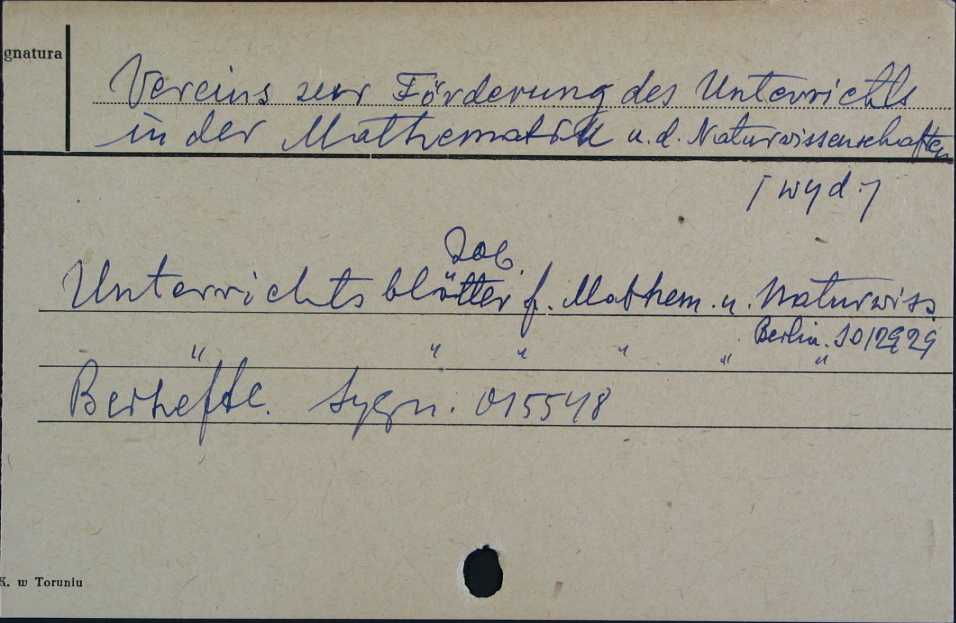 gnatura
Vereins zur Förderung des Unterrichts
in der Mathematik u. d. Naturwissenschaften
[wyd.]
Zob.
Unterrichtsblätter f. Mathem. u. Naturwiss.
Berlin.
" " " " " "
Beihefte. Sygn. 015548
K. w Toruniu